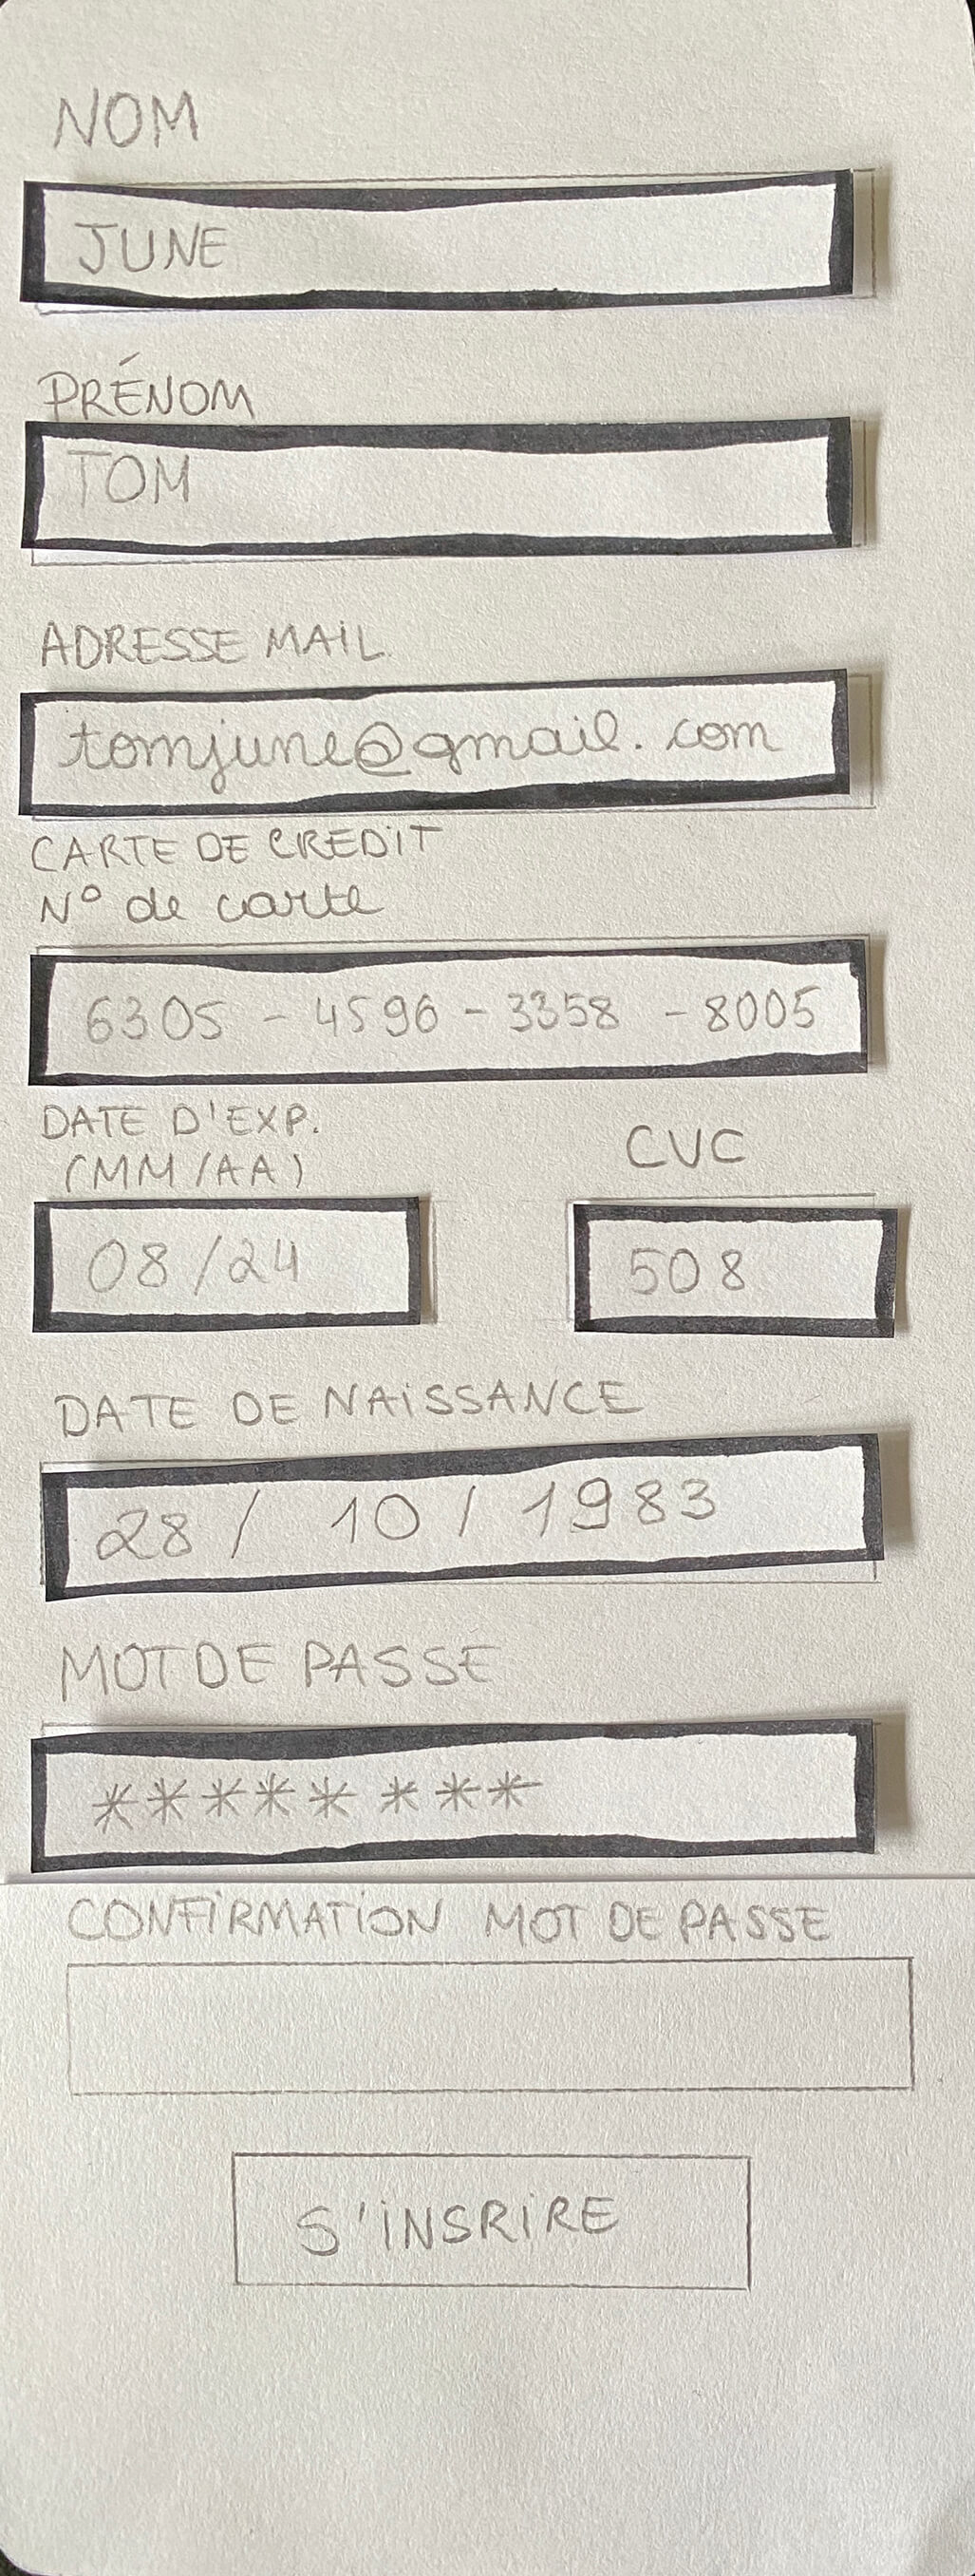 NOM
JUNE
PRÉNOM
TOM
ADRESSE MAIL.
tomjune@gmail.com
CARTE DE CREDIT
N° de carte
6305 - 4596 - 3358 - 8005
DATE D'EXP.
(MM/AA)
CVC
08/24
508
DATE DE NAISSANCE
28 / 10 / 1983
MOT DE PASSE
********
CONFIRMATION MOT DE PASSE
S'INSRIRE